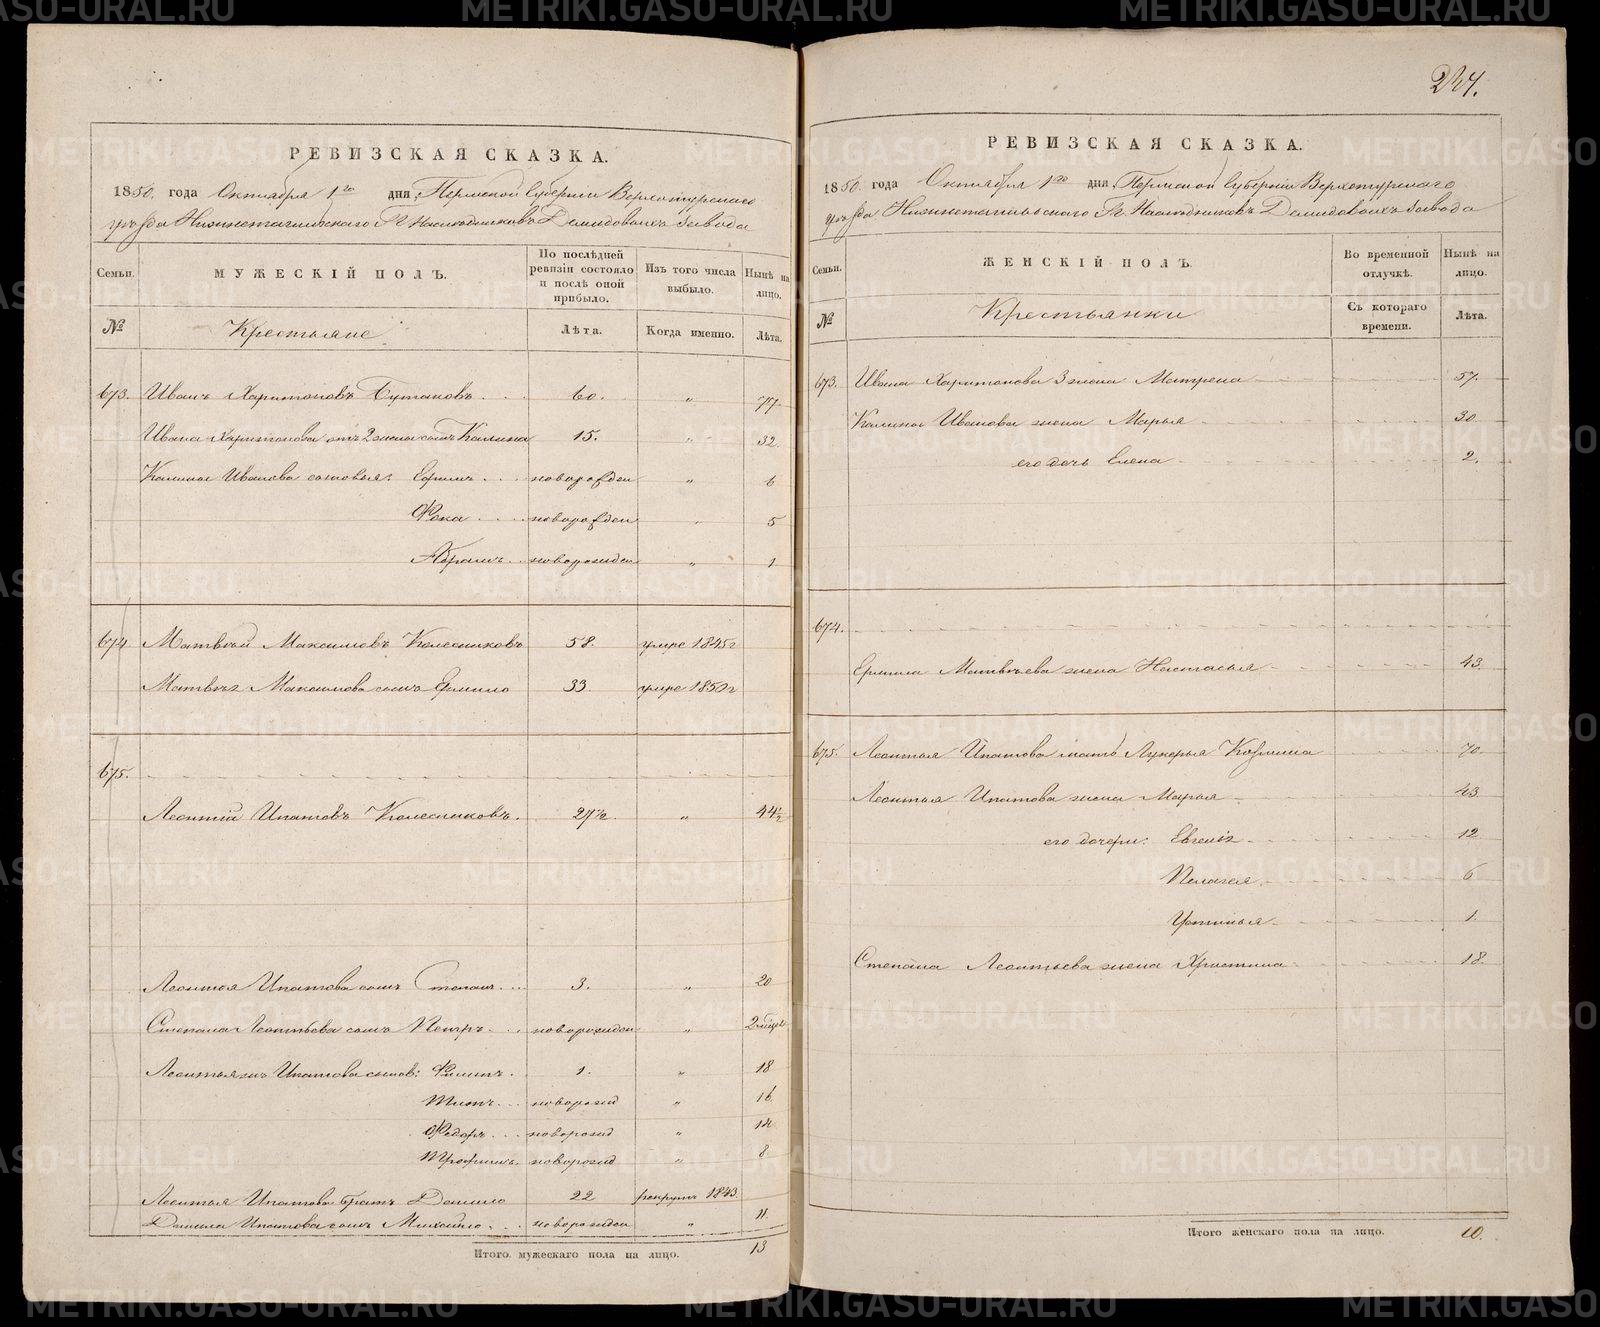 РЕВИЗСКАЯ СКАЗКА.
1850. года Октября 1го дня, Пермской Губернии Верхотурскаго
уѣзда Нижнетагильскаго Гг. Наслѣдниковъ Демидовыхъ Завода
Семьи. МУЖЕСКІЙ ПОЛЪ. По послѣдней ревизіи состояло и послѣ оной прибыло. Изъ того числа выбыло. Нынѣ на лицо.
№ Крестьяне Лѣта. Когда именно. Лѣта.
673. Иванъ Харитоновъ Бутаковъ 60. " 77.
Ивана Харитонова отъ 2 жены сынъ Калина 15. " 32.
Калины Иванова сыновья: Ефимъ новорожден " 6
Фока новорожден " 5
Абрамъ новорожден " 1
674 Матвѣй Максимовъ Колесниковъ 58. умре 1845г
Матвѣя Максимова сынъ Ермило 33. умре 1850г
675.
Леонтій Ипатовъ Колесниковъ. 27½ " 44½
Леонтья Ипатова сынъ Степанъ 3. " 20
Степана Леонтьева сынъ Петръ новорожден " 2 мѣся
Леонтья Ипатова сынов: Филипъ 1. " 18
Титъ новорожд " 16
Федоръ новорожд " 14
Трофимъ новорожд " 8
Леонтья Ипатова братъ Данило 22 рекрутъ 1843.
Данила Ипатова сынъ Михайло новорожден " 11
Итого мужескаго пола на лицо. 13
РЕВИЗСКАЯ СКАЗКА.
1850. года Октября 1го дня, Пермской Губерніи Верхотурскаго
уѣзда Нижнетагильскаго Гг. Наслѣдниковъ Демидовыхъ Завода
Семьи. ЖЕНСКІЙ ПОЛЪ. Во временной отлучкѣ. Нынѣ на лицо.
№ Крестьянки Съ котораго времени. Лѣта.
673. Ивана Харитонова 3 жена Матрена 57.
Калины Иванова жена Марья 30.
его дочь Елена 2.
674.
Ермила Матвѣева жена Настасья 43.
675. Леонтья Ипатова мать Лукерья Козмина 70.
Леонтья Ипатова жена Марья 43.
его дочери: Евгенія 12
Пелагея 6
Устинья 1.
Степана Леонтьева жена Христина 18.
Итого женскаго пола на лицо. 10.
METRIKI.GASO-URAL.RU